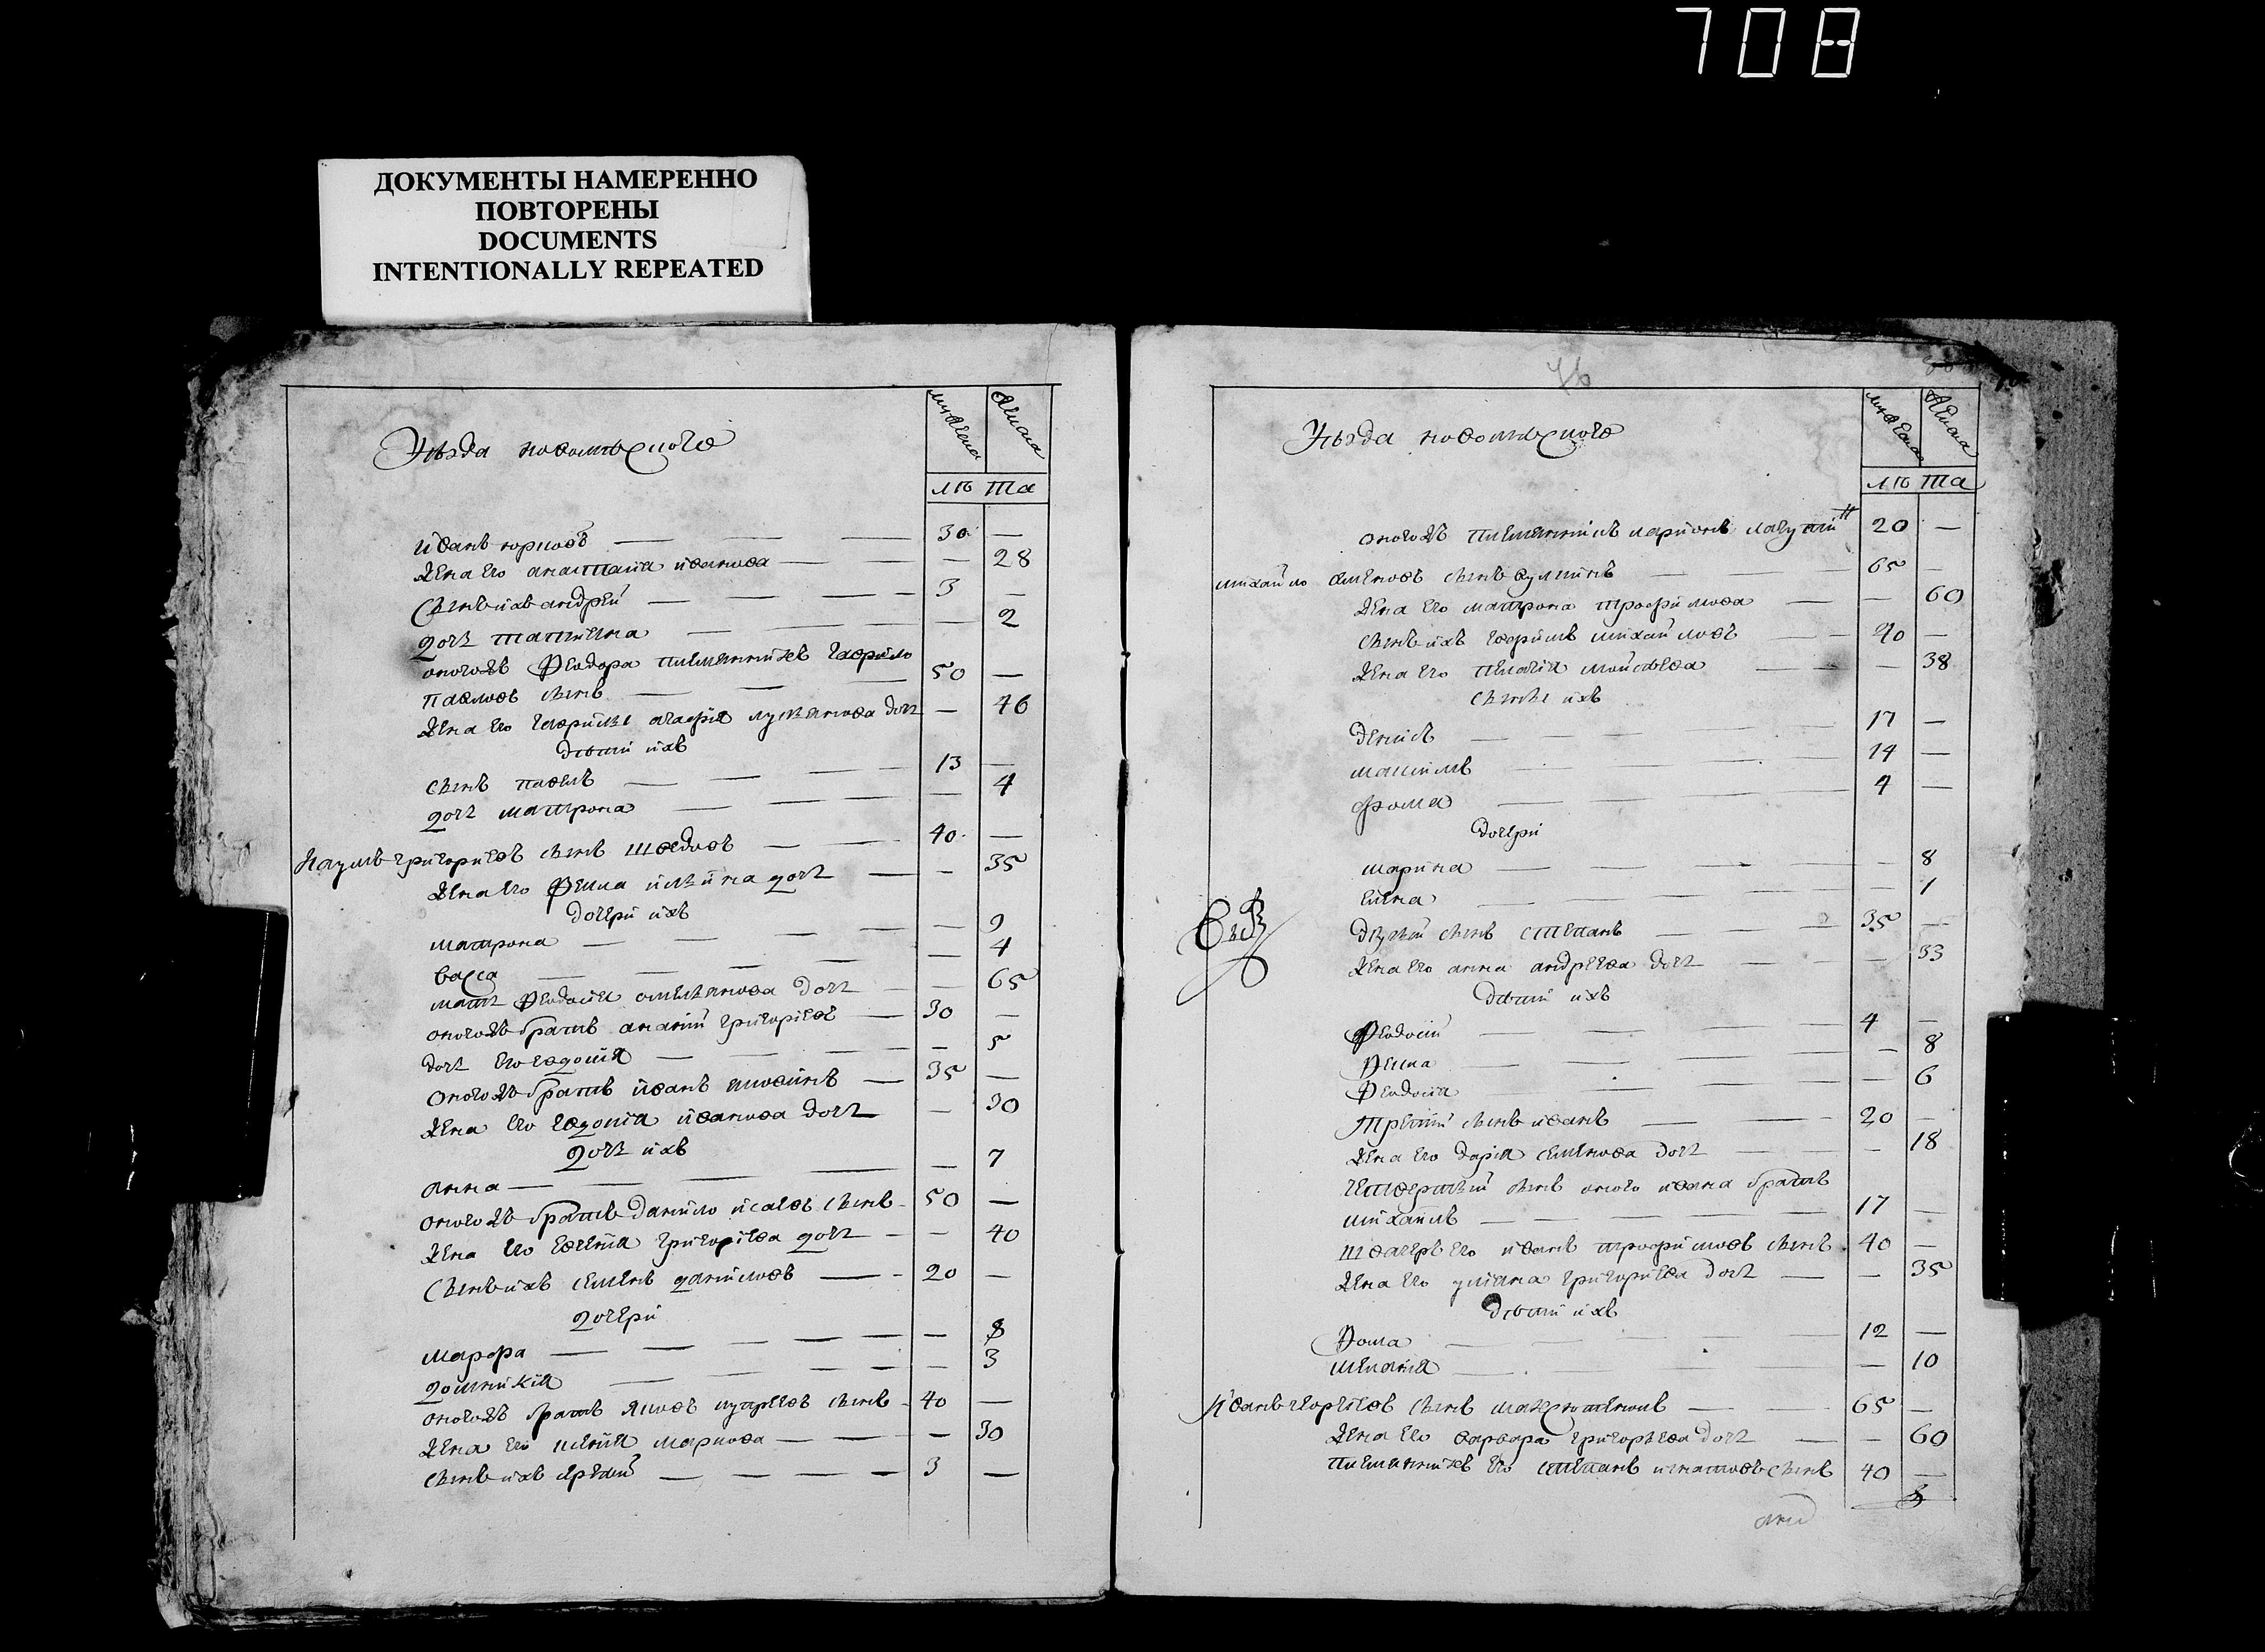 708
ДОКУМЕНТЫ НАМЕРЕННО
ПОВТОРЕНЫ
DOCUMENTS
INTENTIONALLY REPEATED
Уѣзда новомѣскога
мужеска женска
лѣ та
иванъ юрковъ — 30 —
жена его анастасия иванова — — 28
сынъ ихъ андрей — 3 —
дочь татияна — — 2
оногожъ Феодора племянникъ гаврило
павловъ сынъ — 50 —
жена его гаврилы агафия лукьянова дочь — 46
дѣти ихъ
сынъ павелъ — 13 —
дочь матрона — — 4
Наумъ григориевъ сынъ шведовъ — 40 —
жена его Фекла ильина дочь — — 35
дочери ихъ
матрона — — 9
васса — — 4
мать Феодосия омельянова дочь — — 65
оногожъ братъ ананий григориевъ — 30 —
дочь его евдокия — — 5
оногожъ братъ иванъ — 35 —
жена его евдокия иванова дочь — 30
дочь ихъ
анна — — 7
оногожъ братъ данило исаевъ сынъ — 50 —
жена его евгения григориева дочь — — 40
сынъ ихъ семенъ даниловъ — 20 —
дочери
марфа — — 8
домникия — — 3
оногожъ братъ яковъ сынъ — 40 —
жена его ксения маркова — — 30
сынъ ихъ — 3 —
76
Уѣзда новомѣскога
мужеска женска
лѣ та
оногожъ племянникъ ларионъ 20 —
михайло семеновъ сынъ — 65 —
жена его матрона трофимова — — 60
сынъ ихъ михайловъ — 40 —
жена его пелагия моисѣева — — 38
сыны ихъ
денисъ — 17 —
максимъ — 14 —
фома — 4 —
дочери
марина — — 8
елена — — 1
другий сынъ степанъ — 35 —
жена его анна андреева дочь — — 33
дѣти ихъ
Феодосий — 4 —
Фекла — — 8
Феодосия — — 6
третий сынъ иванъ — 20 —
жена его дария семенова дочь — — 18
четвертый сынъ оного ивана братъ
михаилъ — 17 —
швагеръ его иванъ трофимовъ сынъ 40 —
жена его улияна григориева дочь — — 35
дѣти ихъ
Фома — 12 —
мелания — — 10
Иванъ сынъ — 65 —
жена его варвара григорьева дочь — — 60
племянникъ его степанъ игнатовъ сынъ 40 —